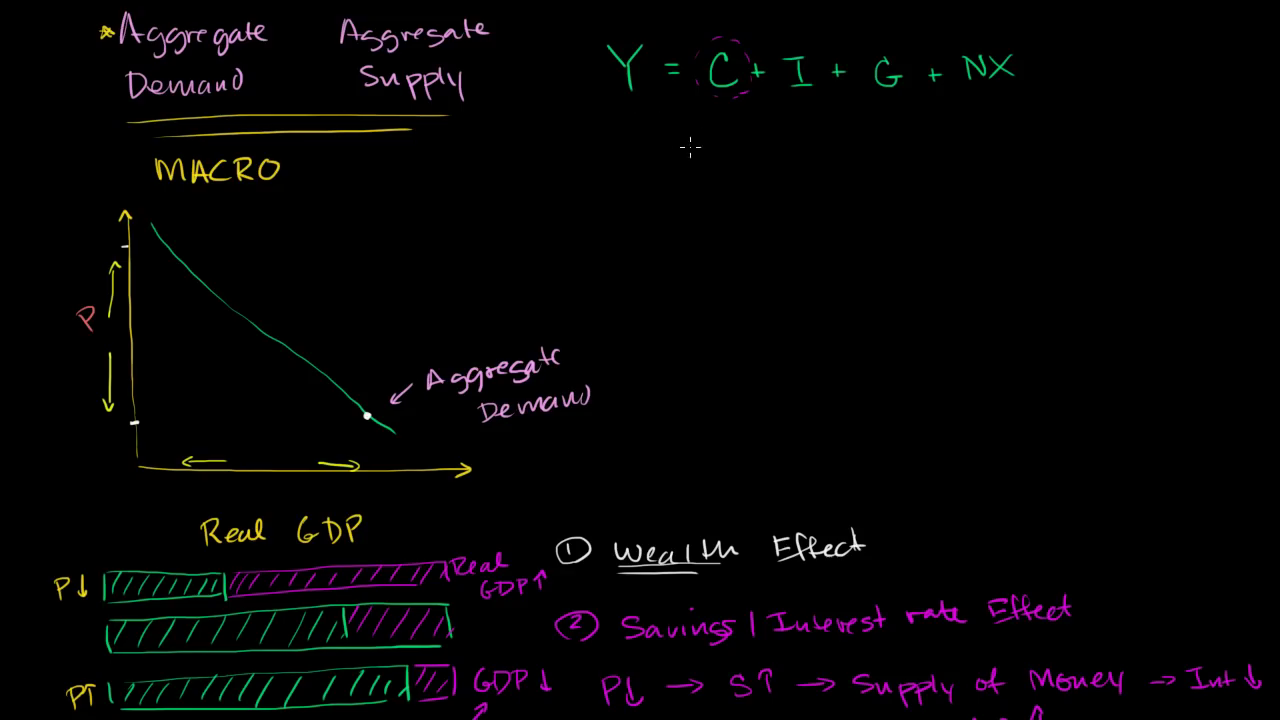 Aggregate Aggregate
Demand Supply
MACRO
Y = C + I + G + NX
P
Aggregate
Demand
Real GDP
P↓
Real
GDP↑
P↑
GDP↓
① Wealth Effect
② Savings / Interest rate Effect
P↓ → S↑ → Supply of Money → Int↓